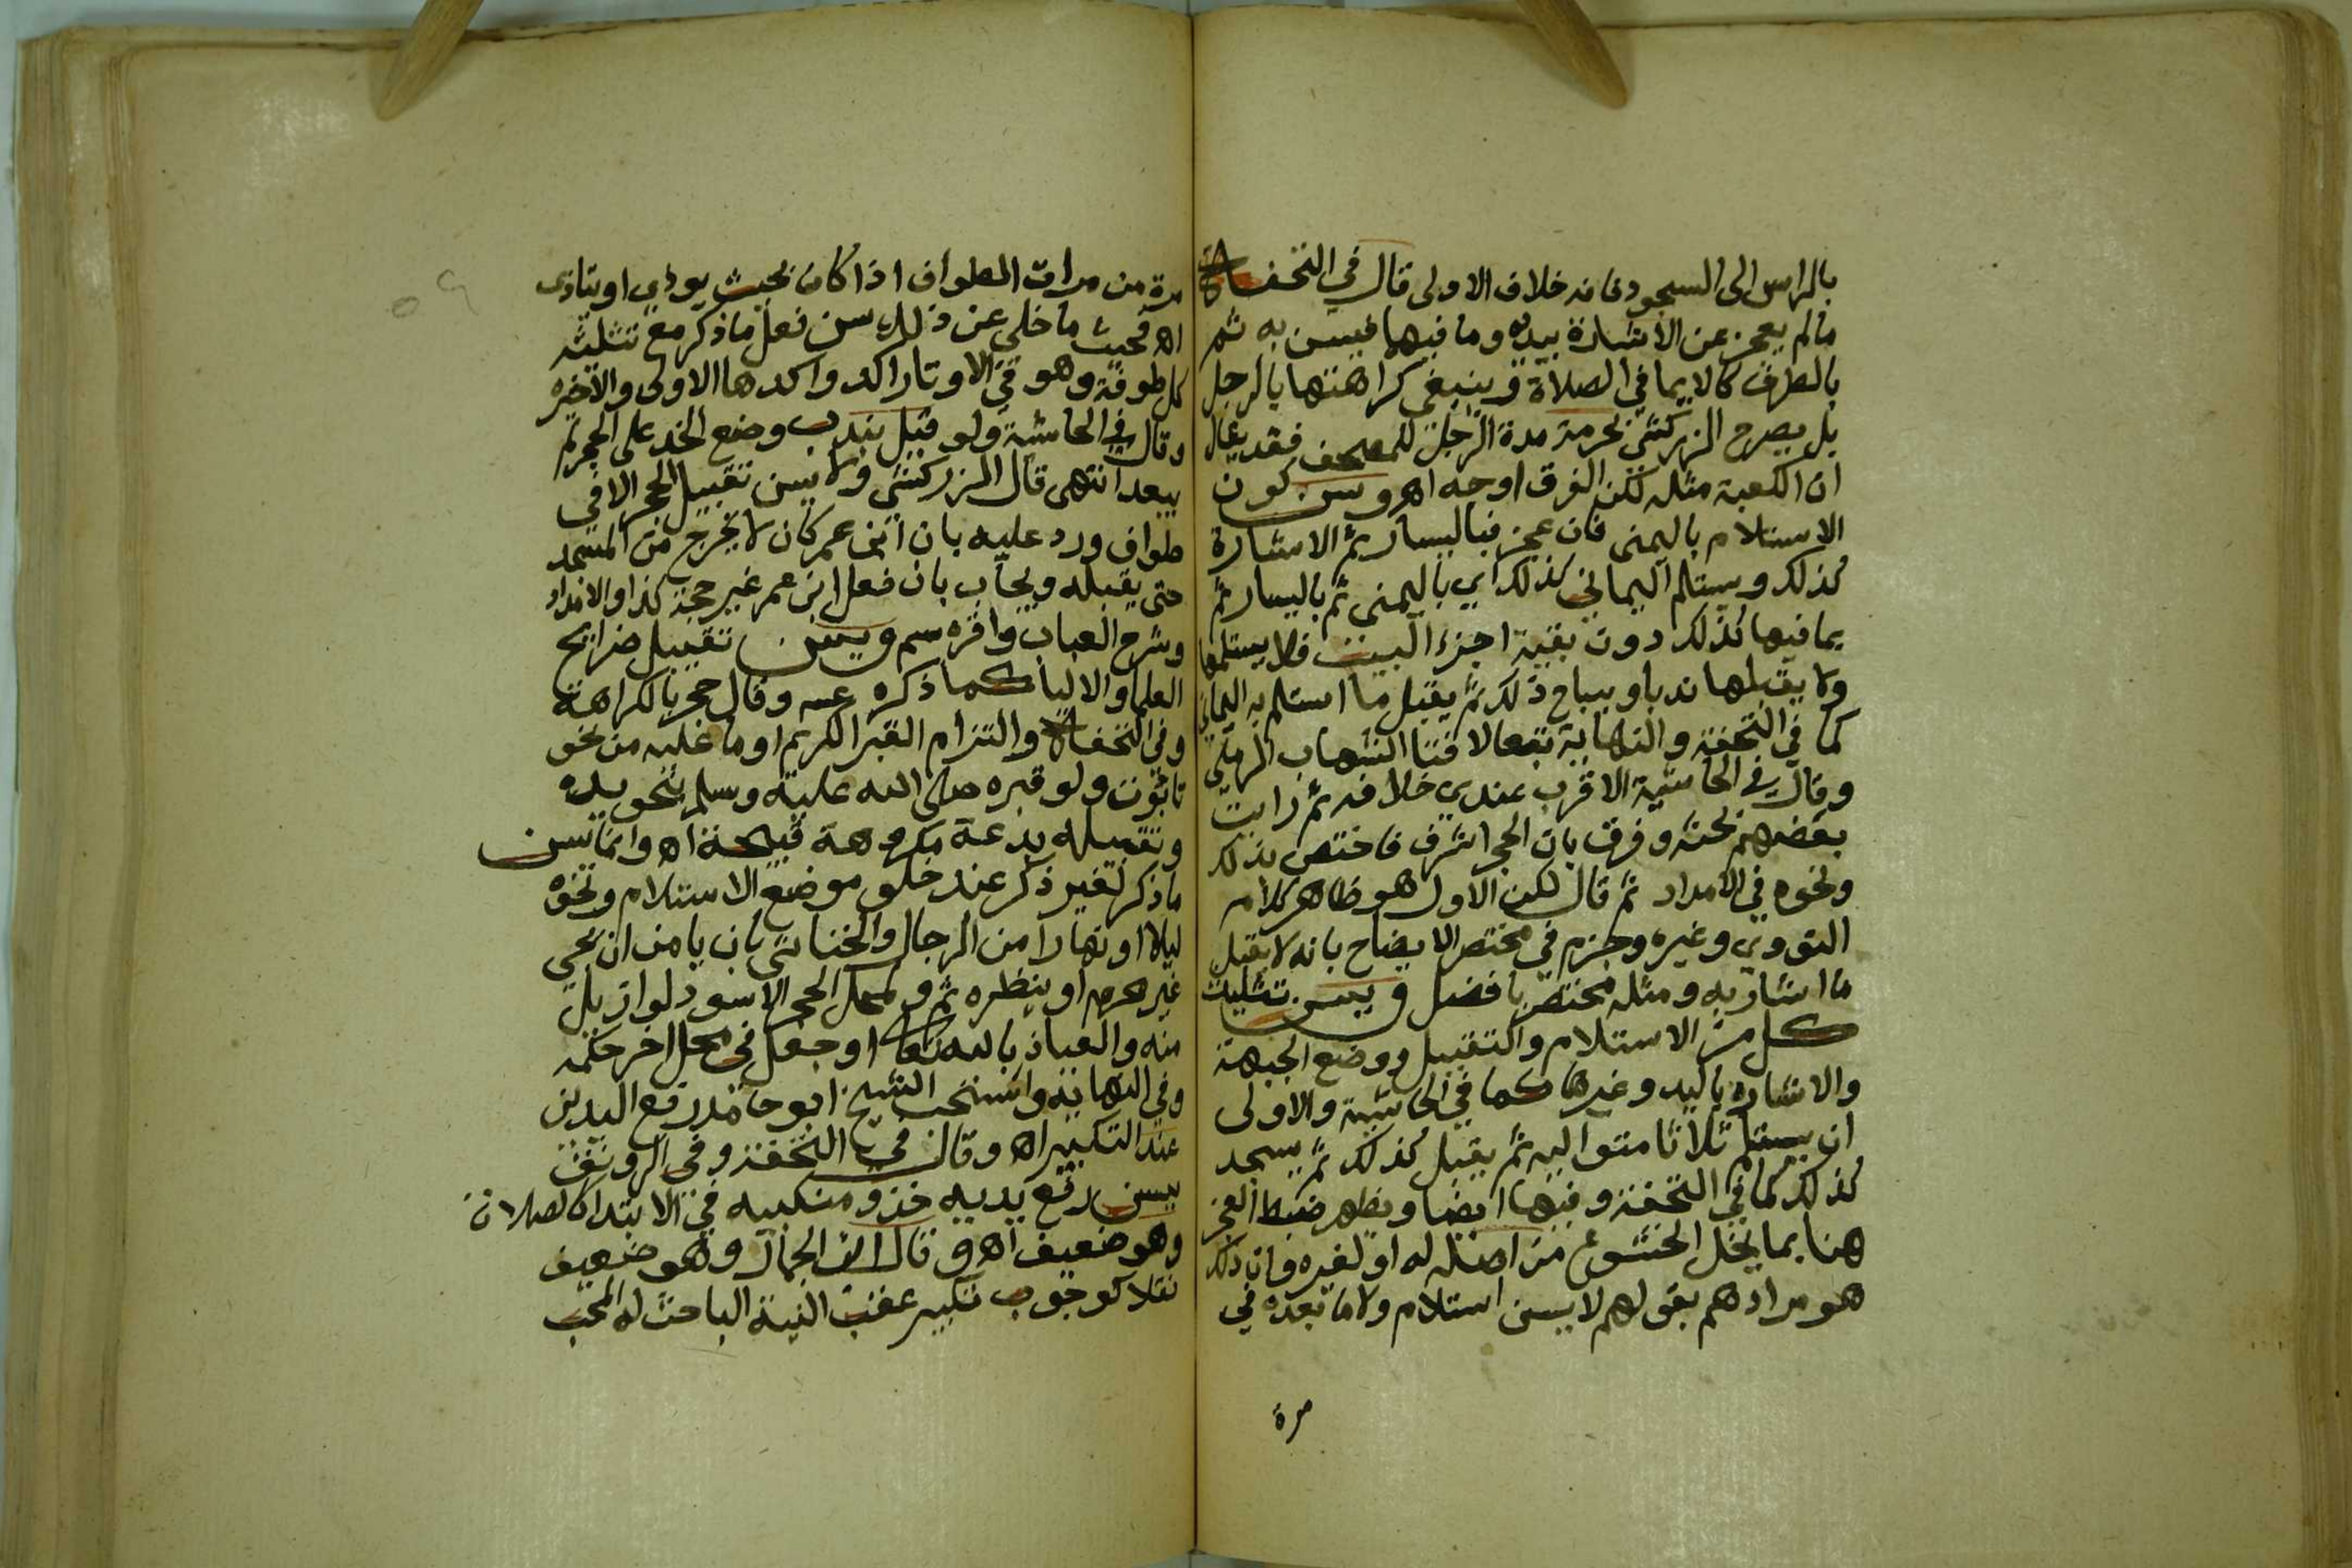 بالراس الى السجود فانه خلاف الاولى قال في التحفة
ما لم يعجز عن الاشارة بيده وما فيها فيسن به ثم
بالطرف كالايما في الصلاة وينبغي كراهتها بالرجل
بل يصرح الزركشي بحرمة مدة الرجل للمصحف فقد يقال
ان الكعبة مثله لكن الفرق اوجه اهـ ويسن كون
الاستلام باليمنى فان عجز فباليسار ثم الاشارة
كذلك ويستلم اليماني كذلك اي باليمنى ثم باليسار ثم
بما فيها كذلك دون بقية اجزء البيت فلا يستلمها
ولا يقبلها ندبا ويباح ذلك ثم يقبل ما استلم به اليماني
كما في التحفة والنهاية تبعا لافتا الشهاب الرملي
وقال في الحاشية الاقرب عندي خلافه ثم رايت
بعضهم بحثه وفرق بان الحجر اشرف فاختص بذلك
ونحوه في الامداد ثم قال لكن الاول هو ظاهر كلام
النووي وغيره وجزم في مختصر الايضاح بانه لا يقبل
ما اشار به ومثله مختصر بافضل ويسن تثليث
كل من الاستلام والتقبيل ووضع الجبهة
والاشارة باليد وغيرها كما في الحاشية والاولى
ان يستلم ثلاثا متواليه ثم يقبل كذلك ثم يسجد
كذلك كما في التحفة وفيها ايضا ويظهر ضبط العجز
هنا بما يخل الخشوع من اصله له او لغيره وان ذلك
هو مرادهم بقولهم لا يسن استلام ولا ما بعده في
مرة
مرة من مرات الطواف اذا كان بحيث يوذي او يتاذى
اهـ فحيث ما خلي عن ذلك سن فعل ما ذكر مع تثليثه
كل طوفة وهو في الاوتار اكد واكدها الاولى والاخيره
وقال في الحاشية ولو قيل بندب وضع الخد على الحجر لم
يبعد انتهى قال الزركشي ولا يسن تقبيل الحجر الا في
طواف ورد عليه بان ابن عمر كان لا يخرج من المسجد
حتى يقبله ويجاب بان فعل ابن عمر غير حجة كذا والامداد
وشرح العباب واقره سم ويسن تقبيل ضرايح
العلما والاليا كما ذكره ع ش وقال حجر بالكراهة
وفي التحفة والتزام القبر الكريم او ما عليه من نحو
تابوت ولو قبره صلى الله عليه وسلم بنحو يده
وتقبيله بدعة مكروهة قبيحة اهـ وانما يسن
ما ذكر لغير ذكر عند خلو موضع الاستلام ونحوه
ليلا او نهارا من الرجال والخناثى بان يامن ان يجي
غير محرم او ينظره ثم ولمحل الحجر الاسود لو ازيل
منه والعياذ بالله تعالى او جعل في محل اخر حكمه
وفي النهاية واستحب الشيخ ابو حامد رفع اليدين
عند التكبير اهـ وقال في التحفة وفي الرونق
يسن رفع يديه حذو منكبيه في الابتدا كالصلاة
وهو ضعيف اهـ وقال ابن الجمال وهو ضعيف
نقلا كوجوب تكبير عقب النية الباحث له المحب
٥٩